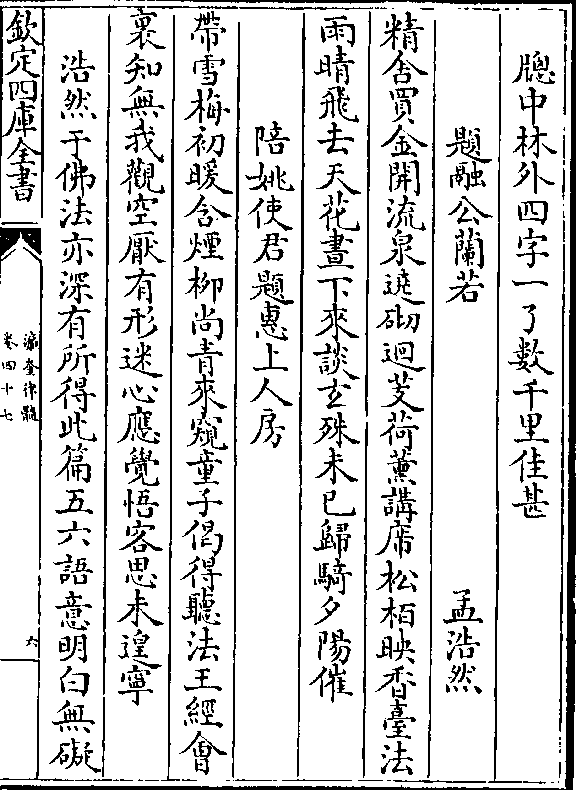 牕中林外四字一了數千里佳甚
題融公蘭若　孟浩然
精舍買金開流泉遶砌迴芰荷薫講席松栢映香臺法
雨晴飛去天花晝下來談玄殊未已歸騎夕陽催
陪姚使君題惠上人房
帶雪梅初暖含煙柳尚青來窺童子偈得聽法王經會
裏知無我觀空厭有形迷心應覺悟客思未遑寧
浩然于佛法亦深有所得此篇五六語意明白無礙
欽定四庫全書
瀛奎律髓
卷四十七
六